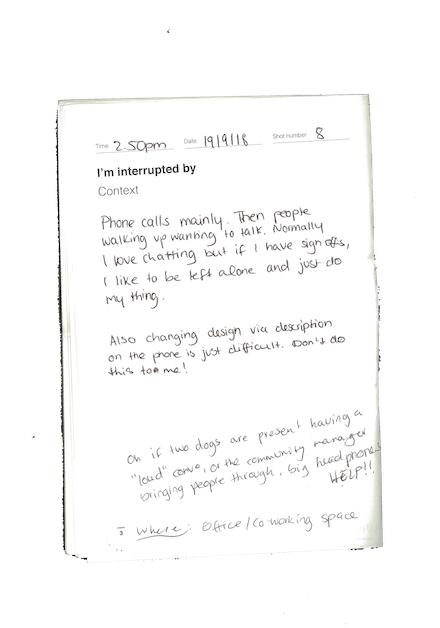 Time 2.50pm Date 19/9/18 Shot number 8
I'm interrupted by
Context
Phone calls mainly. Then people
walking up wanting to talk. Normally
I love chatting but if I have sign offs,
I like to be left alone and just do
my thing.
Also changing design via description
on the phone is just difficult. Don't do
this to me!
Oh if two dogs are present having a
"loud" convo, or the community manager
bringing people through, big headphones
HELP!!
Where: Office/Co working space